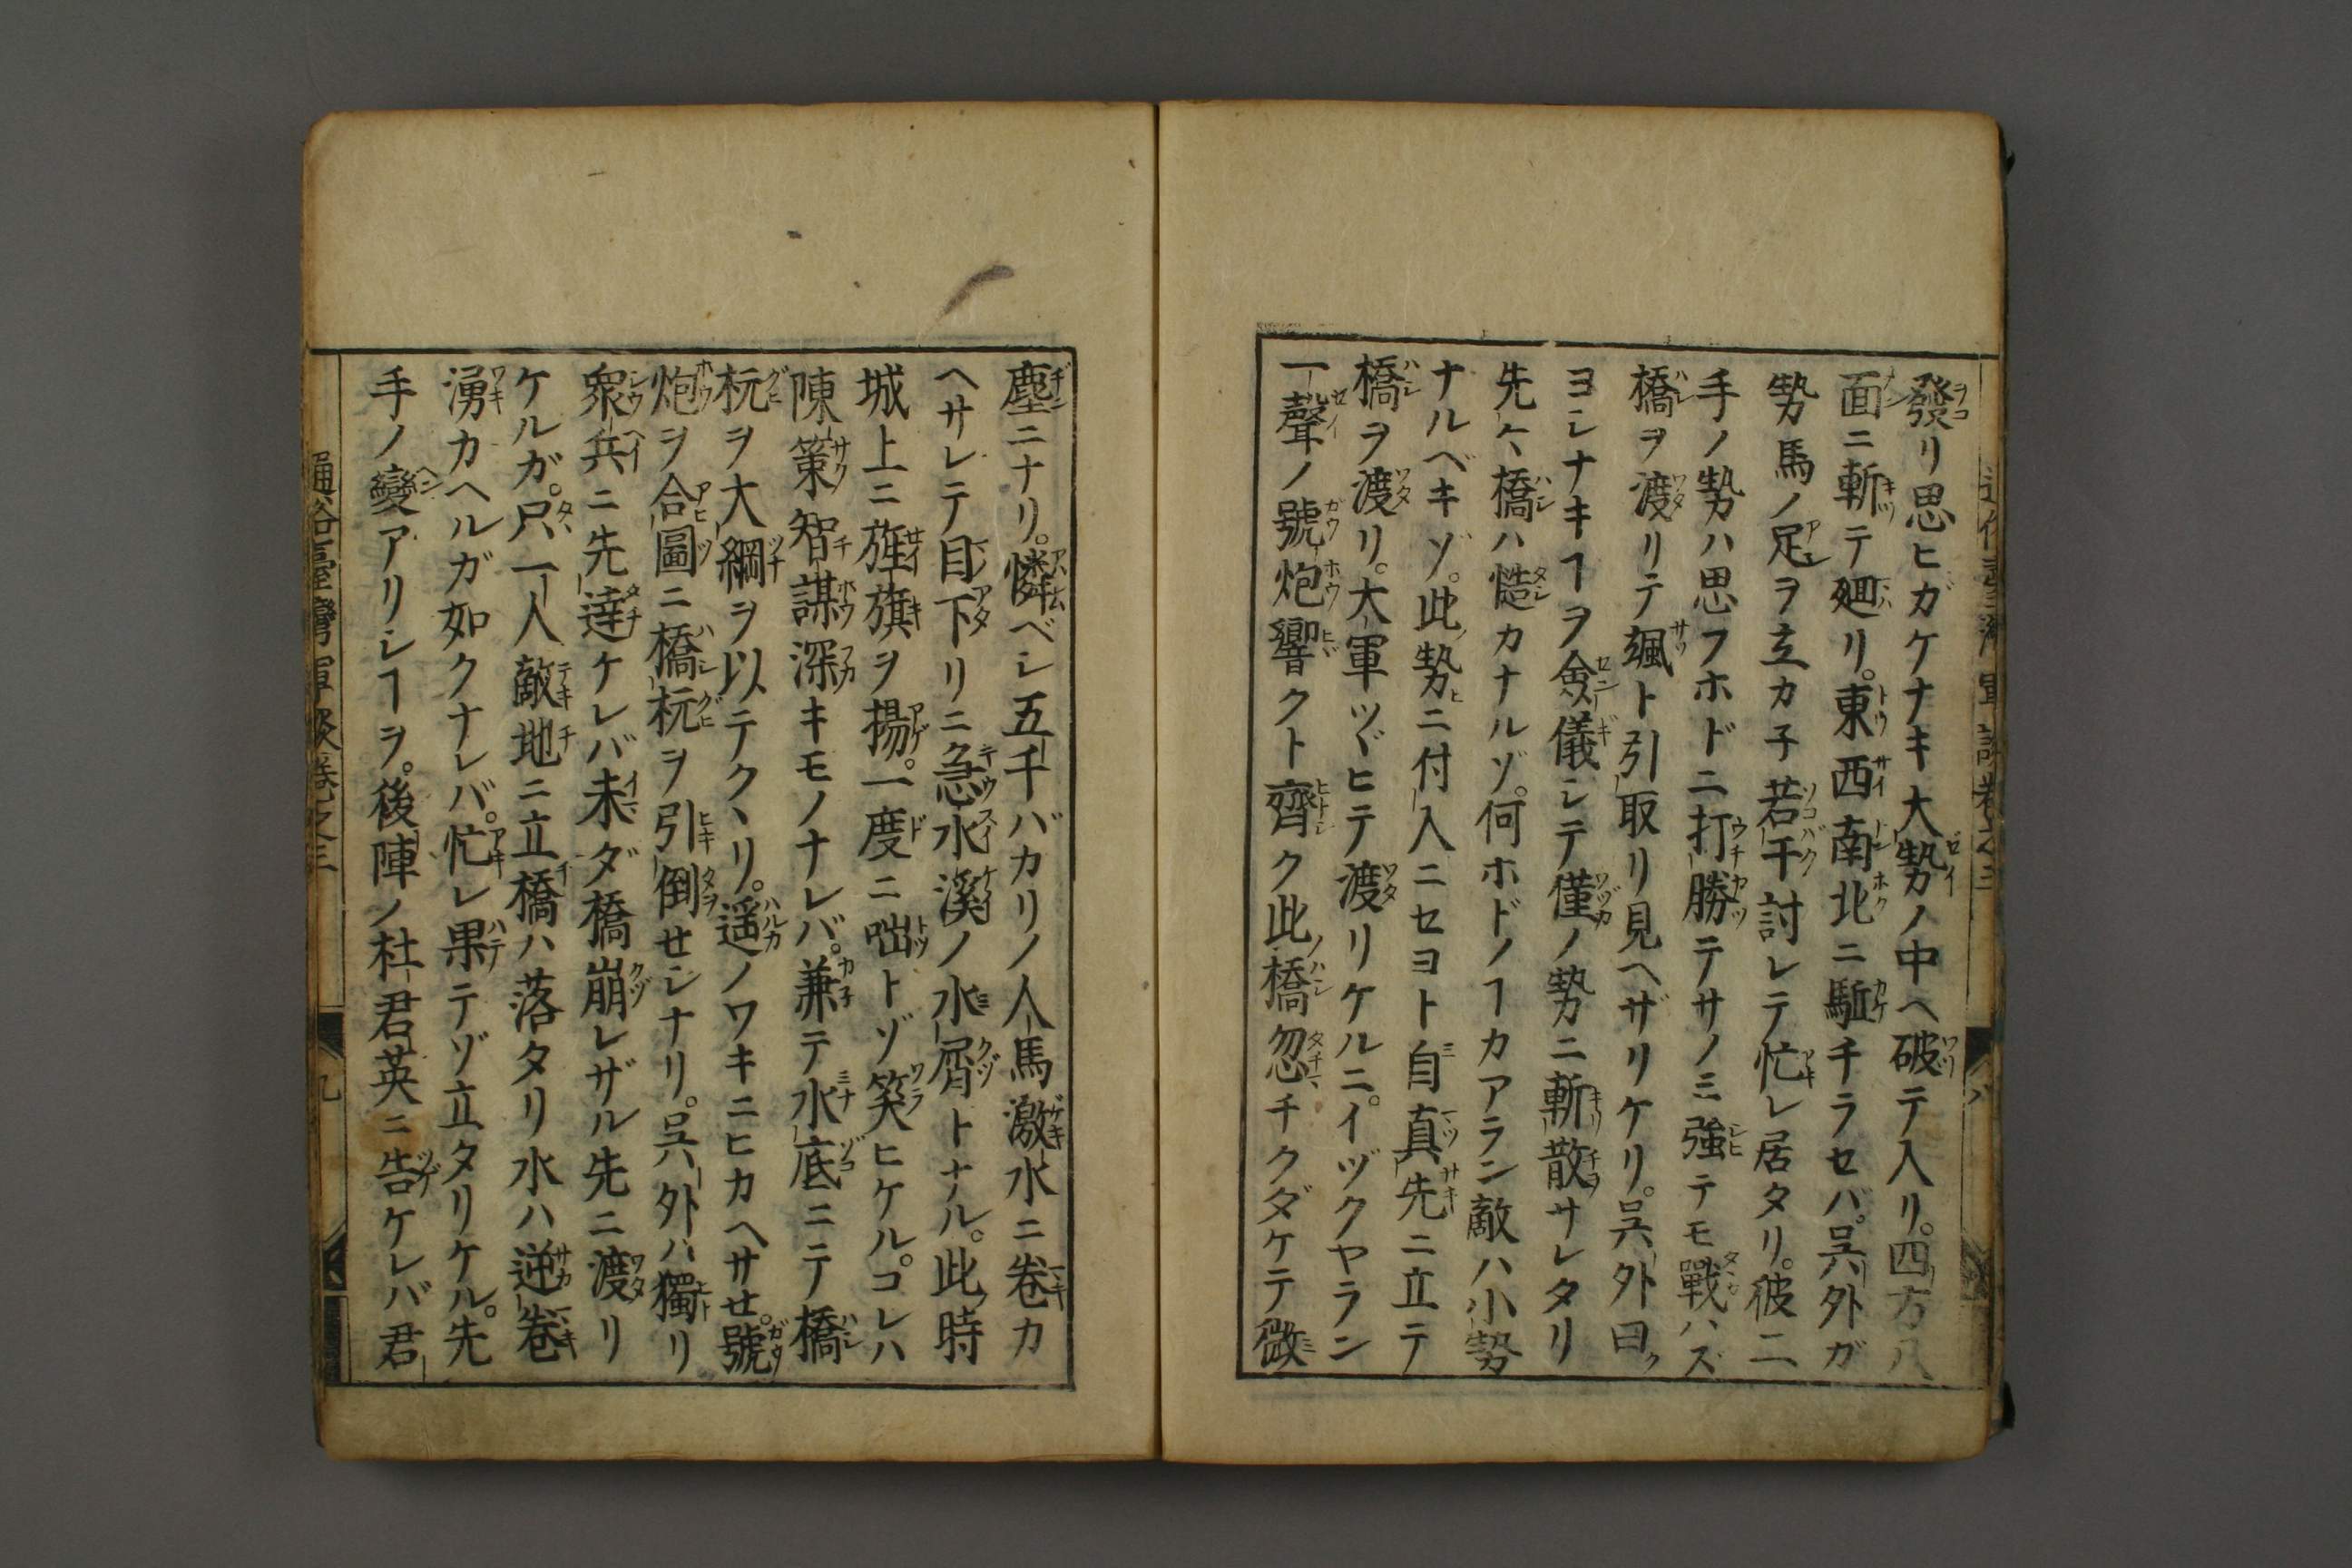 發リ思ヒガケナキ大勢ノ中ヘ破テ入リ。四方八
面ニ斬テ廻リ。東西南北ニ駈チラセバ。呉外ガ
勢馬ノ足ヲ立カ子若干討レテ忙レ居タリ。彼二
手ノ勢ハ思フホドニ打勝テサノミ強テモ戰ハズ
橋ヲ渡リテ颯ト引取リ見ヘザリケリ。呉外曰
ヨシナキヿヲ僉儀シテ僅ノ勢ニ斬散サレタリ
先ヘ橋ハ慥カナルゾ。何ホドノヿカアラン敵ハ小勢
ナルベキゾ。此勢ニ付入ニセヨト自真先ニ立テ
橋ヲ渡リ。大軍ツヾヒテ渡リケルニ。イヅクヤラン
一聲ノ號炮響クト齊ク此橋忽チクダケテ微
塵ニナリ。憐ベシ五千バカリノ人馬激水ニ卷カ
ヘサレテ目下リニ急水溪ノ水屑トナル。此時
城上ニ旌旗ヲ揚。一度ニ咄トゾ笑ヒケル。コレハ
陳策智謀深キモノナレバ。兼テ水底ニテ橋
杬ヲ大綱ヲ以テクヽリ。遥ノワキニヒカヘサセ。號
炮ヲ合圖ニ橋杬ヲ引倒セシナリ。呉外ハ獨リ
衆兵ニ先達ケレバ未ダ橋崩レザル先ニ渡リ
ケルガ。只一人敵地ニ立橋ハ落タリ水ハ逆卷
湧カヘルガ如クナレバ。忙レ果テゾ立タリケル。先
手ノ變アリシヿヲ。後陣ノ杜君英ニ告ケレバ君
通俗臺灣軍談卷之三
九